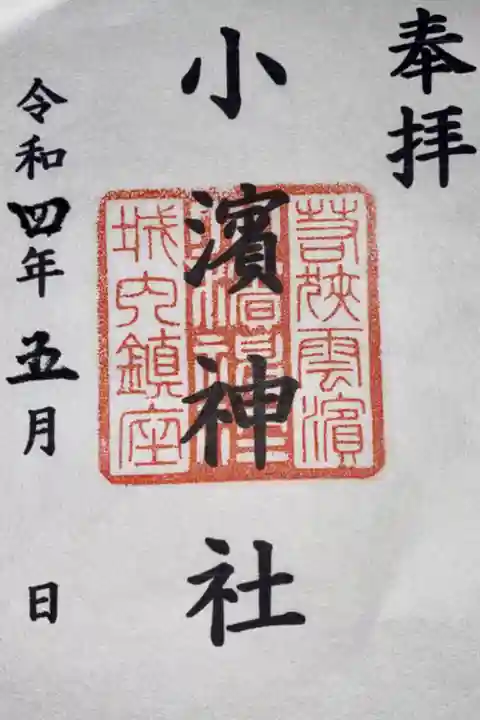 奉拝
小濱神社
若狭雲濱
城内鎮座
令和四年五月 日